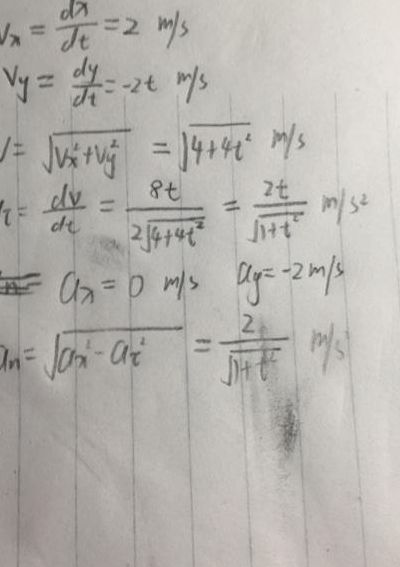 Vx = dx/dt = 2 m/s
Vy = dy/dt = -2t m/s
V = √(Vx²+Vy²) = √(4+4t²) m/s
aτ = dv/dt = 8t/(2√(4+4t²)) = 2t/√(1+t²) m/s²
ax = 0 m/s ay = -2 m/s
an = √(ax² - aτ²) = 2/√(1+t²) m/s